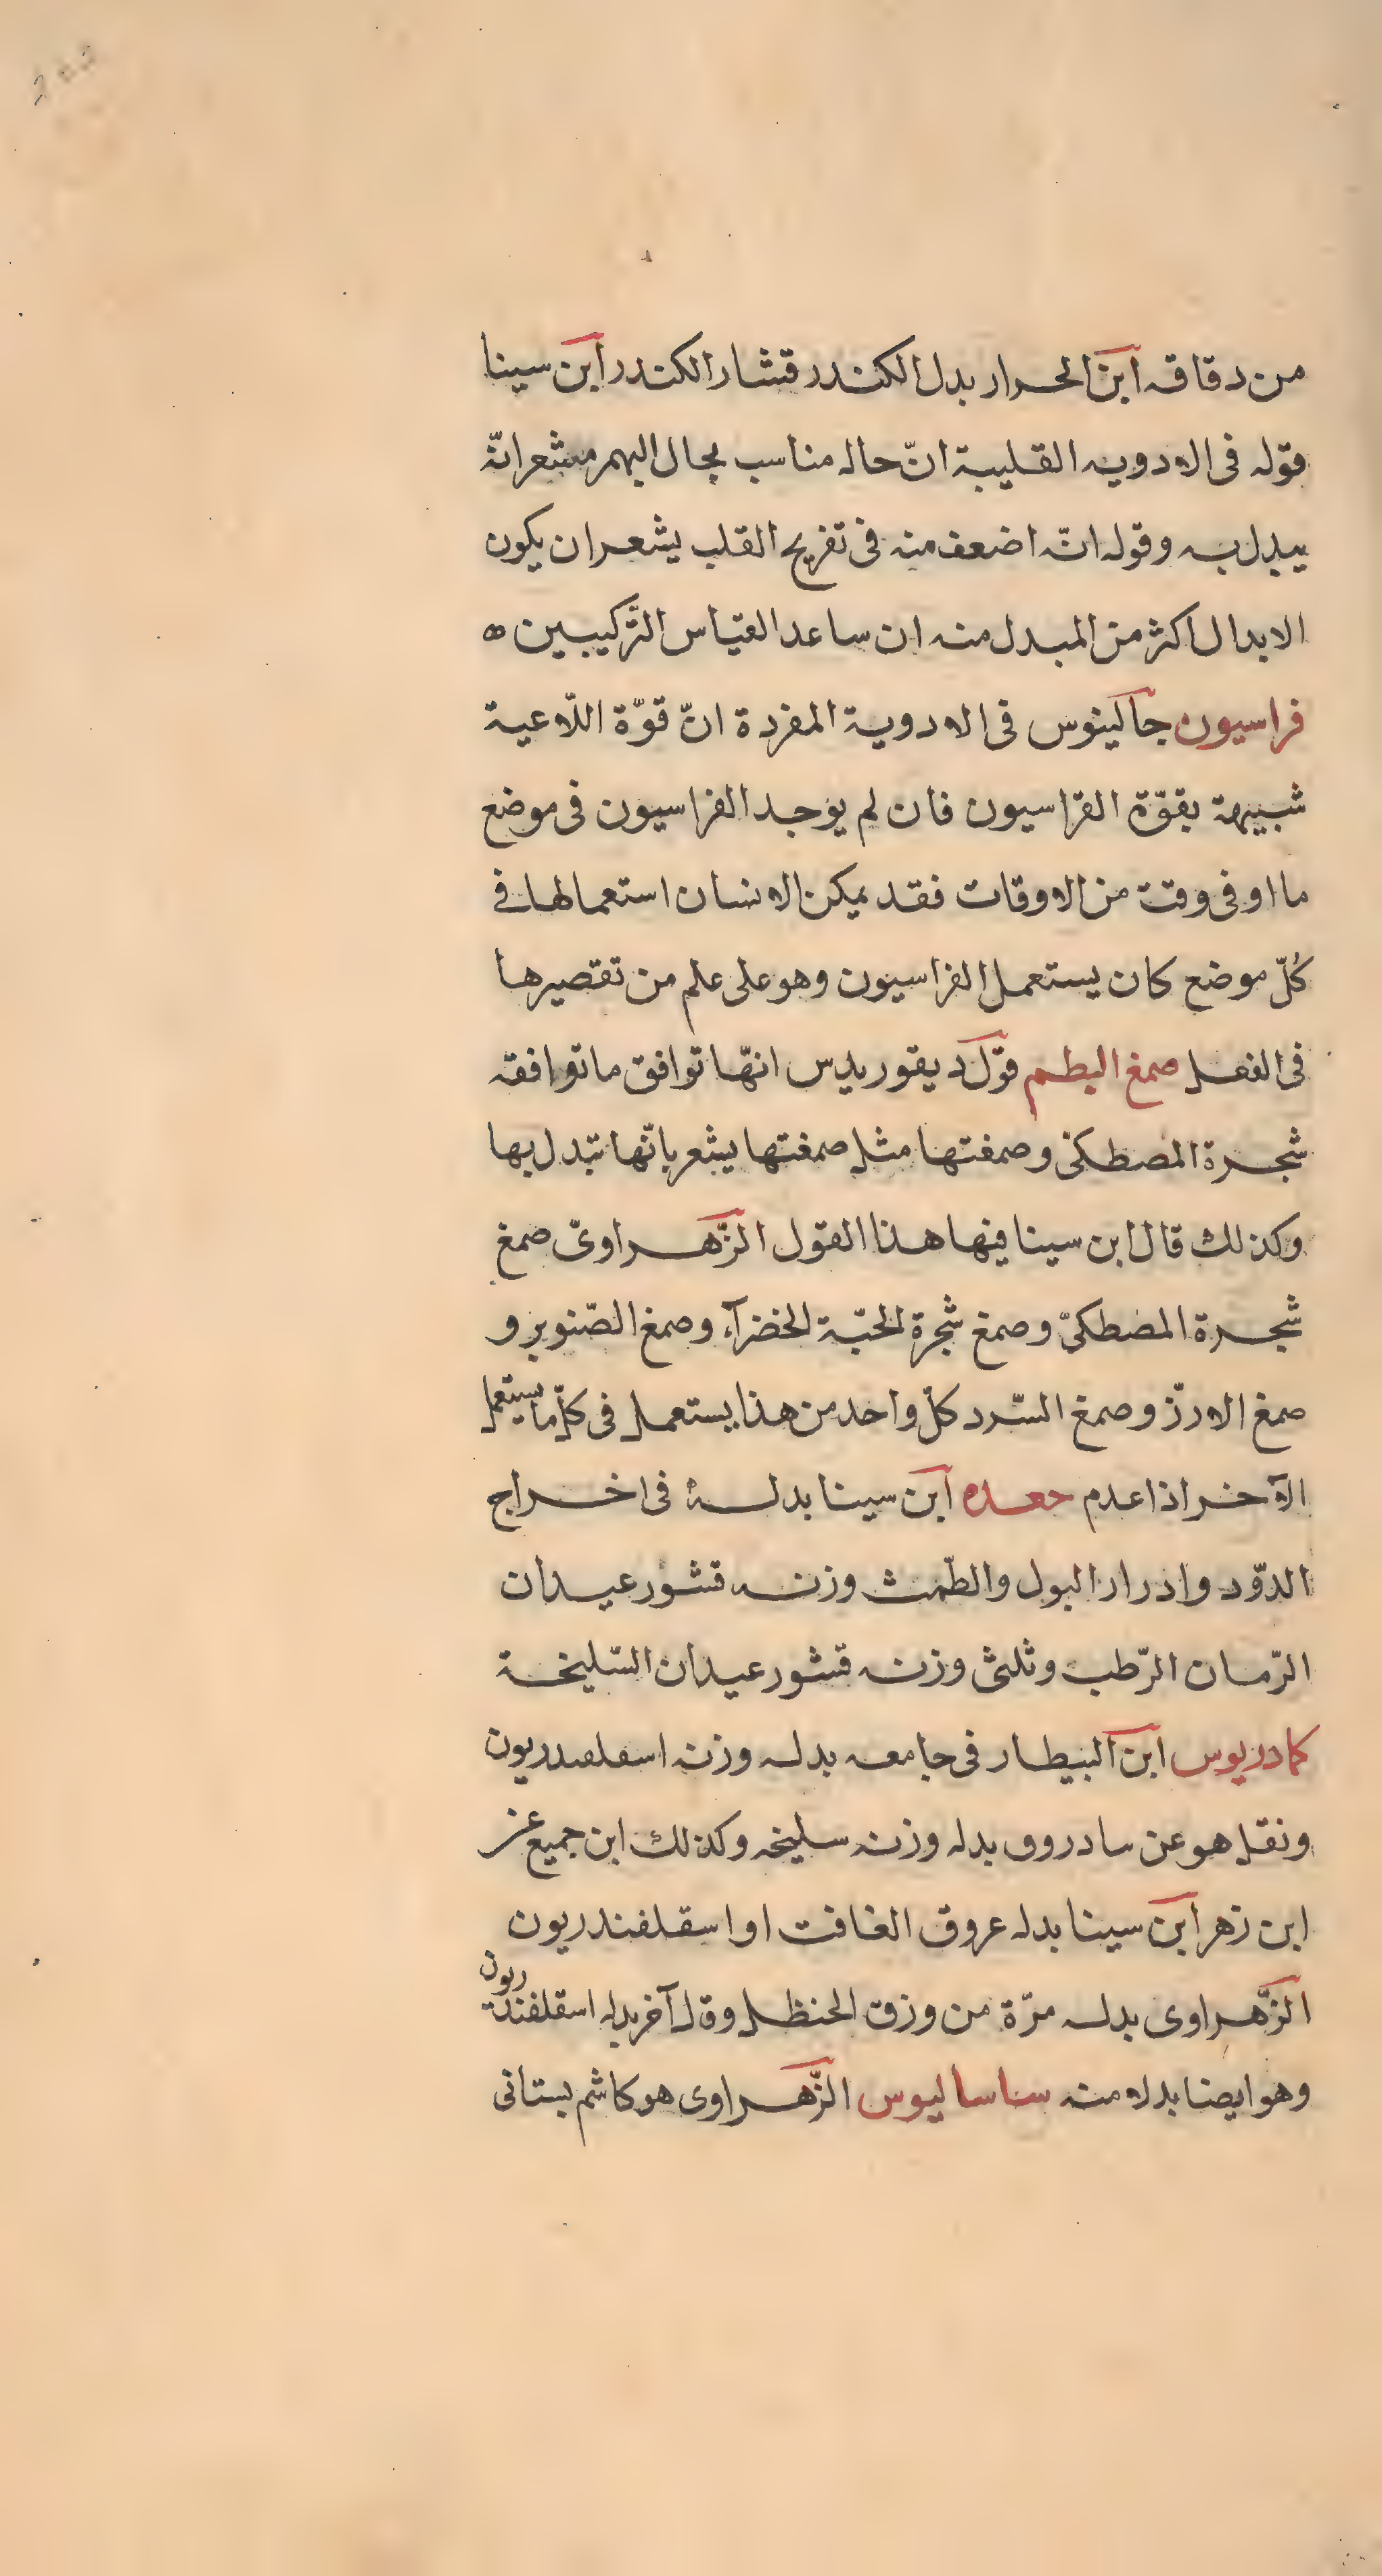 من دقاقه ابن الحرار بدل الكندر قشار الكندر ابن سينا
قوله فى الادويه القلبية انّ حاله مناسب بحال البهمن مشعر انّه
يبدل به وقوله انّه اضعف منه فى تفريح القلب يشعر ان يكون
الابدال اكثر من المبدل منه ان ساعد القيّاس التّركيبين ه
فراسيون جالينوس فى الادوية المفردة انّ قوّة اللّاعية
شبيهة بقوّة الفراسيون فان لم يوجد الفراسيون فى موضع
ما او فى وقت من الاوقات فقد يمكن الانسان استعمالها فى
كُلّ موضع كان يستعمل الفراسيون وهو على علم من تقصيرها
فى الفعل صمغ البطم قول ديقوريدس انهّا توافق ما توافقه
شجرة المصطكى وصمغتها مثل صمغتها يشعر بانّها تبدل بها
وكذلك قال ابن سينا فيها هذا القول الزّهراوىّ صمغ
شجرة المصطكىّ وصمغ شجرة الحبّة الخضرآء وصمغ الصّنوبر و
صمغ الارزّ وصمغ السّرد كلّ واحد من هذا يستعمل فى كلّ ما يستعمل
الآخر اذا عدم جعده ابن سينا بدله فى اخراج
الدوّد وادرار البول والطّمث وزنه قشور عيدان
الرّمان الرّطب وثلثى وزنه قشور عيدان السّليخة
كمادريوس ابن البيطار فى جامعه بدله وزنه اسقلفندريون
ونقل هو عن سادروق بدله وزنه سليخه وكذلك ابن جميع عن
ابن زهر ابن سينا بدله عروق الغافت او اسقلفندريون
الزّهراوى بدله مرّة من وزق الحنظل وقال آخر بدله اسقلفندريون
وهو ايضا بدله منه ساساليوس الزّهراوى هو كاشم بستانى